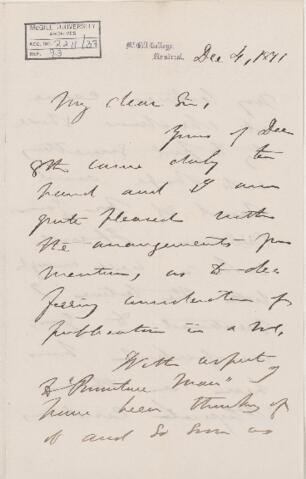 McGILL UNIVERSITY
ARCHIVES
ACC. NO. 2211/23
REF. 93
McGill College,
Montreal. Dec 4, 1871
My dear Sir,
Yours of Dec
8th came duly to
hand and I am
quite pleased with
the arrangements you
mention, as to
consideration of
publication in a
With respect
to "Primitive Man"
have been thinking of
it and so soon as